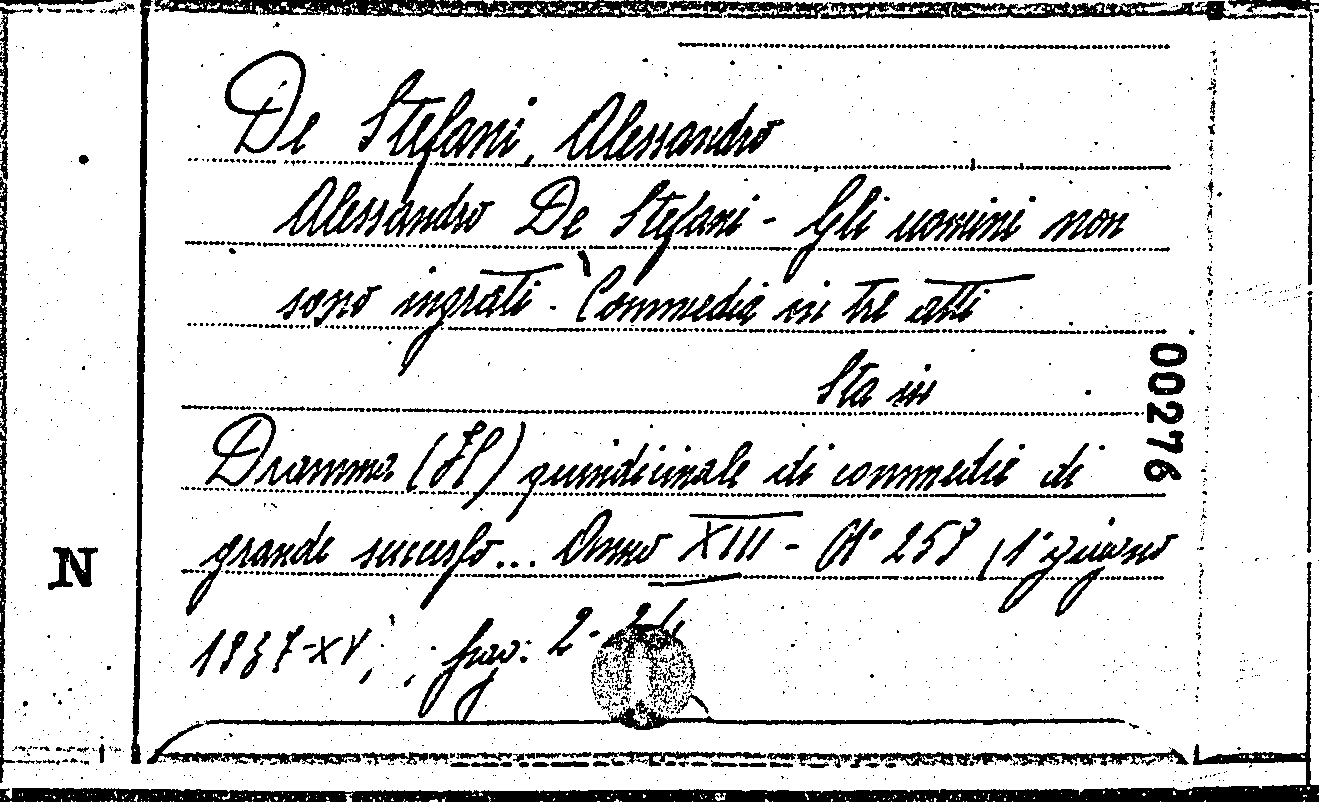 De Stefani, Alessandro
Alessandro De Stefani - Gli uomini non
sono ingrati. Commedia in tre atti
Sta in
Dramma (Il) quindicinale di commedie di
grande successo... Anno XIII - N° 258 (1° giugno
1937-XV), pag: 2-24
00276
N